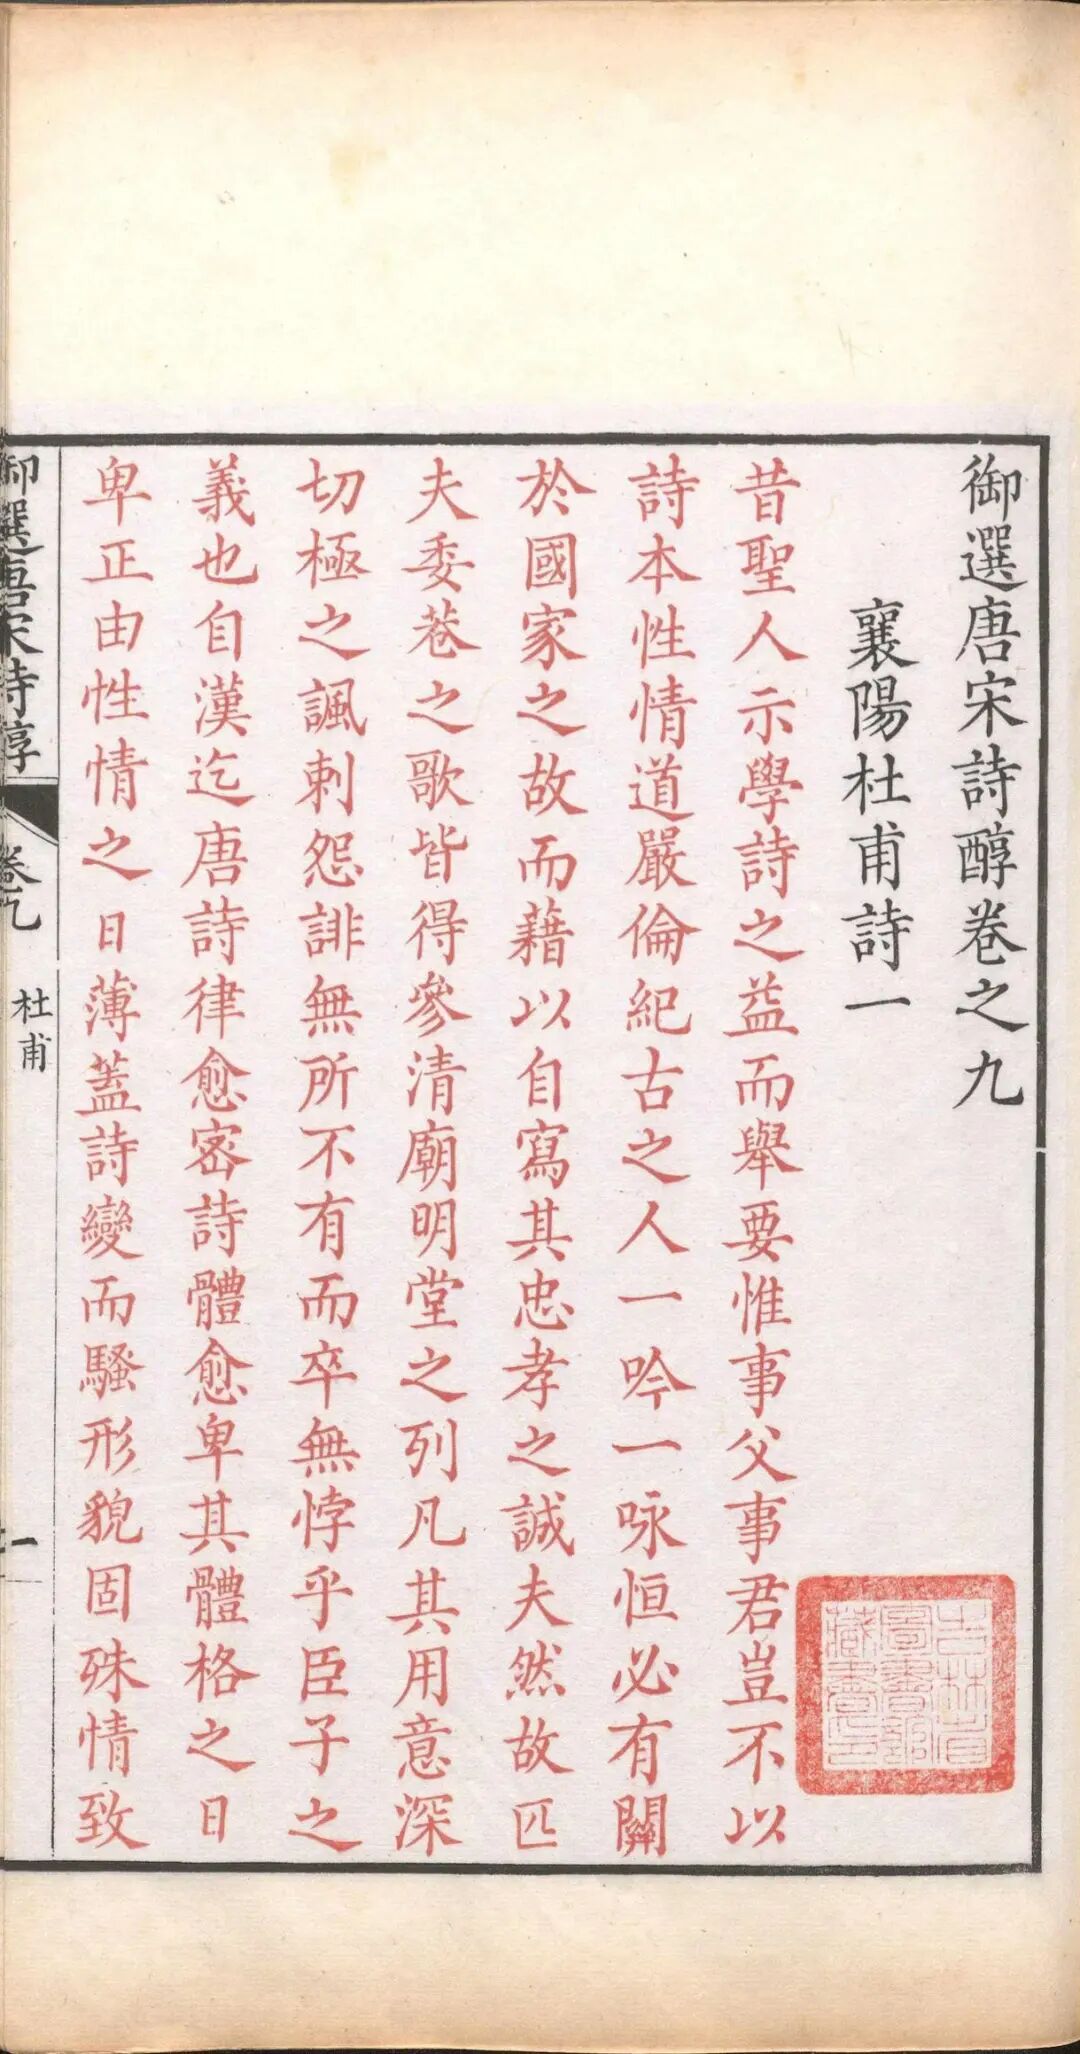 御選唐宋詩醇卷之九
襄陽杜甫詩一
昔聖人示學詩之益而舉要惟事父事君豈不以
詩本性情道嚴倫紀古之人一吟一咏恒必有關
於國家之故而藉以自寫其忠孝之誠夫然故匹
夫委巷之歌皆得參清廟明堂之列凡其用意深
切極之諷刺怨誹無所不有而卒無悖乎臣子之
義也自漢迄唐詩律愈密詩體愈卑其體格之日
卑正由性情之日薄蓋詩變而騷形貌固殊情致
御選唐宋詩醇
卷九
杜甫
一
吉林省
圖書館
藏書之印